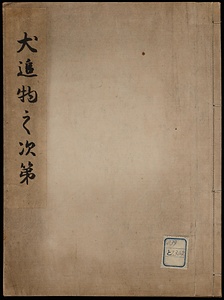 犬追物之次第